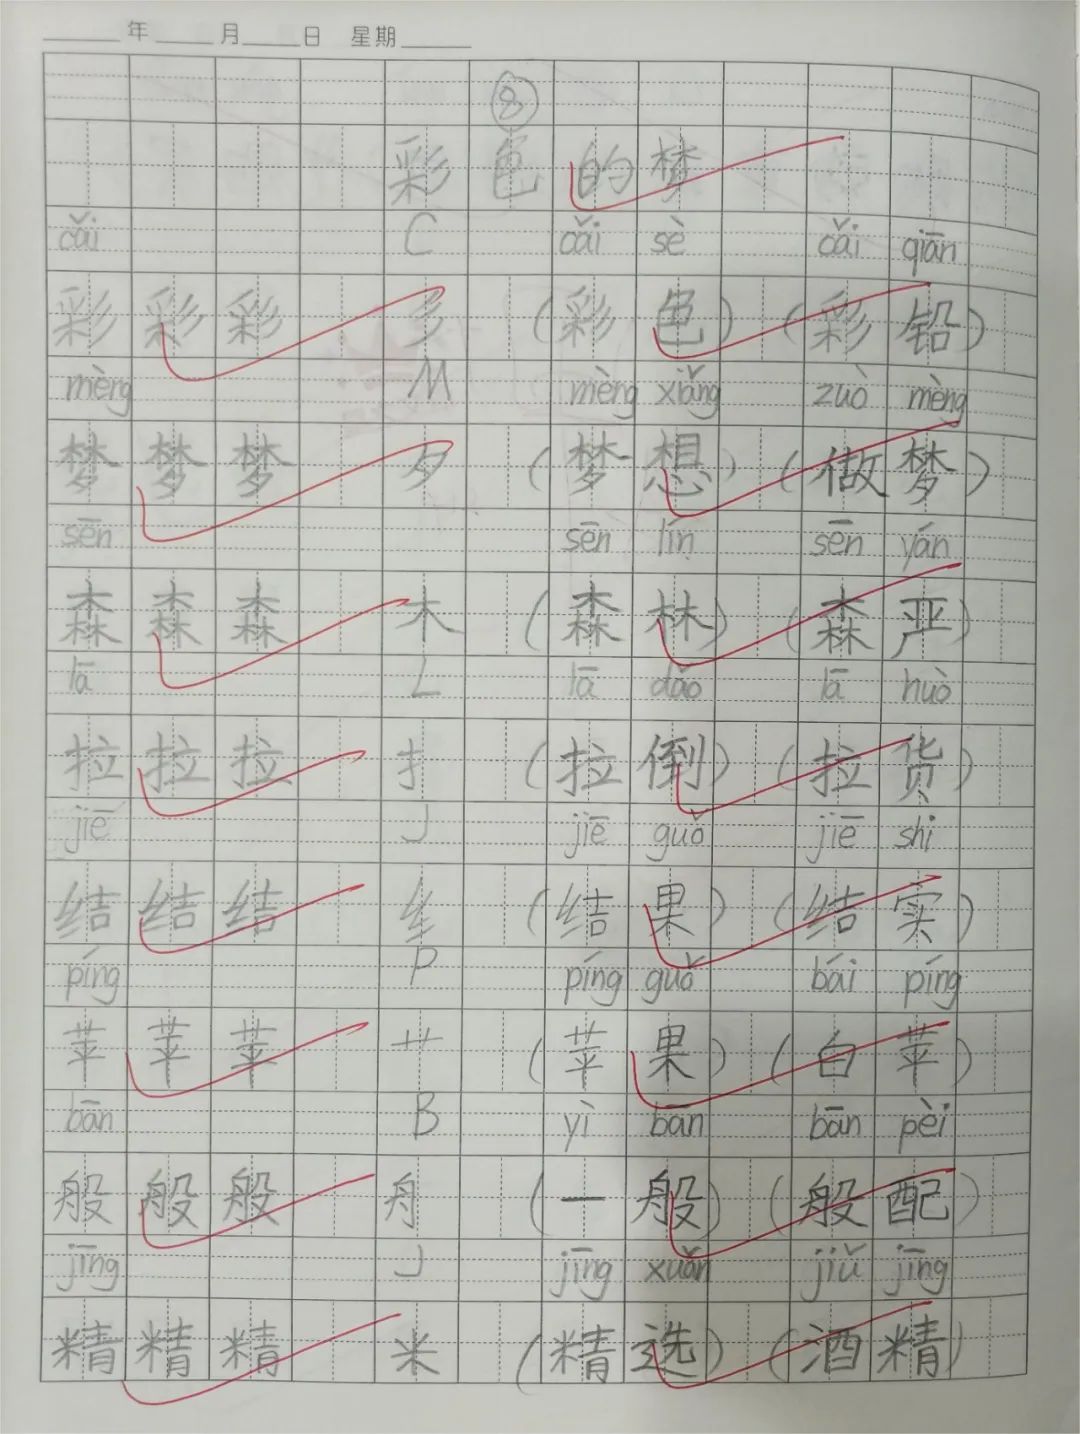 年 月 日 星期
8
彩色的梦
cǎi C cǎi sè cǎi qiān
彩 彩 彩 彡 (彩色) (彩铅)
mèng M mèng xiǎng zuò mèng
梦 梦 梦 夕 (梦想) (做梦)
sēn sēn lín sēn yán
森 森 森 木 (森林) (森严)
lā L lā dǎo lā huò
拉 拉 拉 扌 (拉倒) (拉货)
jiē J jiē guǒ jiē shi
结 结 结 纟 (结果) (结实)
píng P píng guǒ bái píng
苹 苹 苹 艹 (苹果) (白苹)
bān B yì bān bān pèi
般 般 般 舟 (一般) (般配)
jīng J jīng xuǎn jiǔ jīng
精 精 精 米 (精选) (酒精)